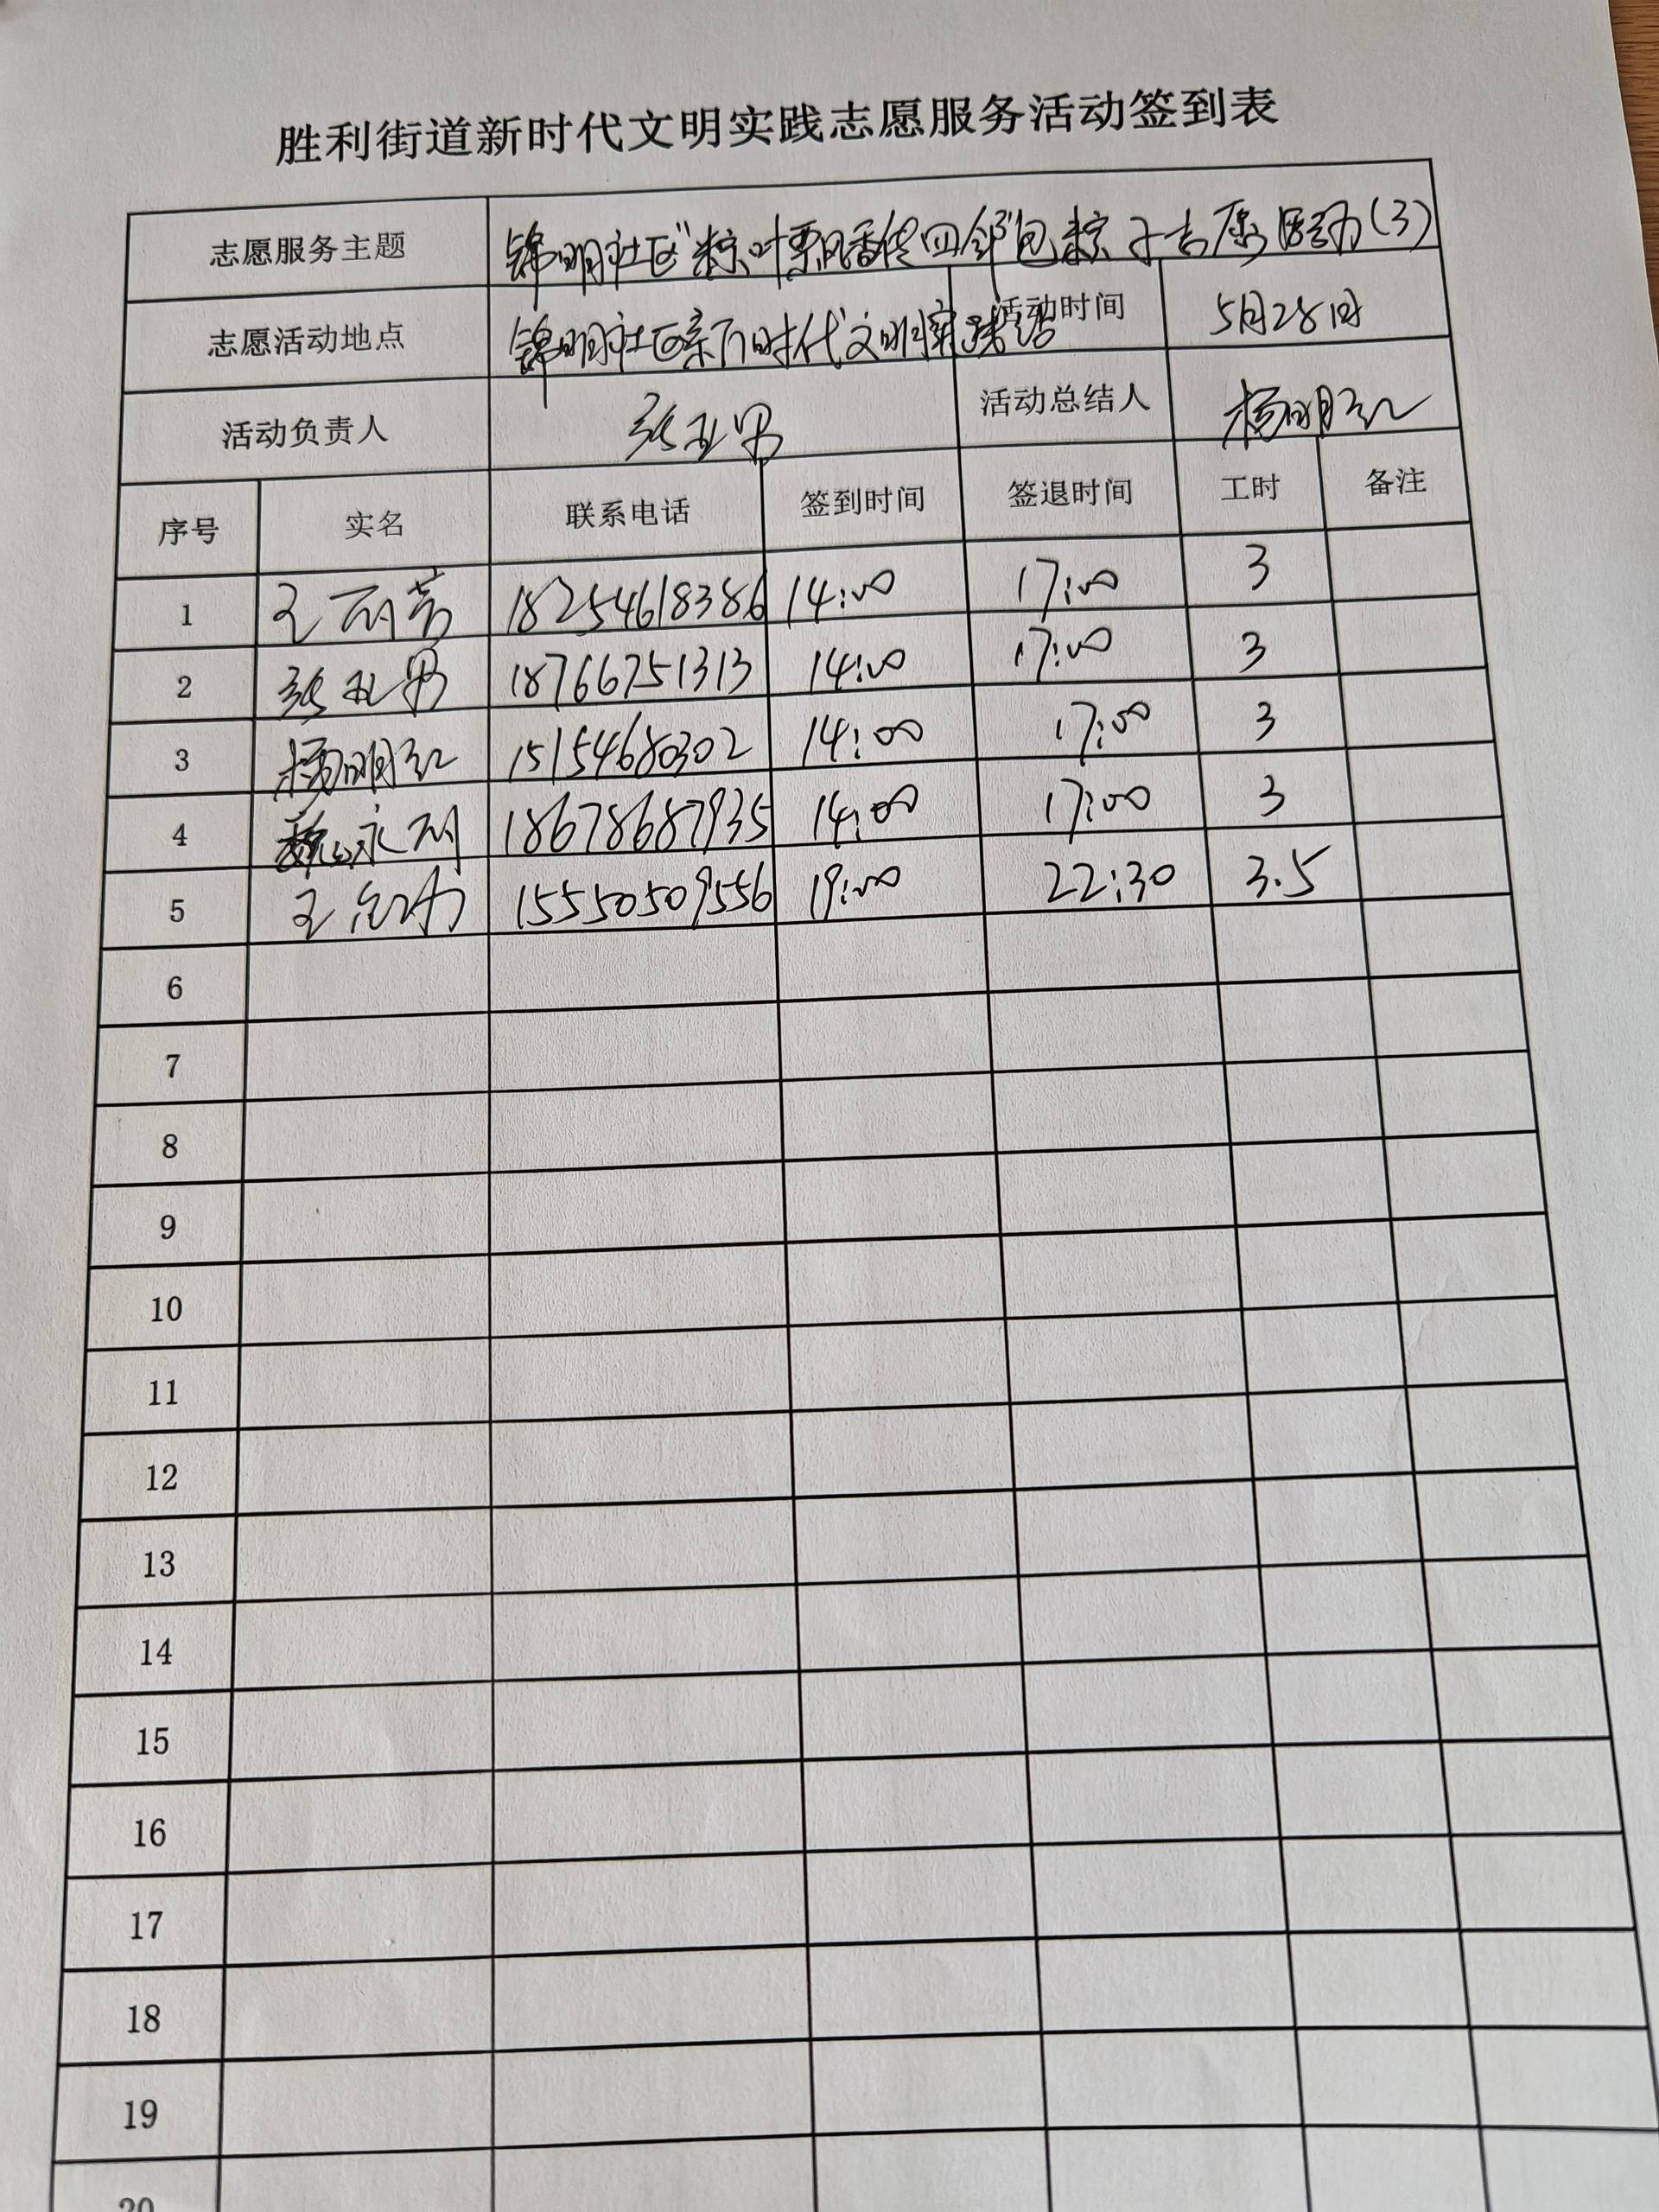 胜利街道新时代文明实践志愿服务活动签到表
志愿服务主题 锦明社区"粽叶飘香传四邻"包粽子志愿活动(3)
志愿活动地点 锦明社区新时代文明实践站 活动时间 5月28日
活动负责人 张亚男 活动总结人 杨明红
序号 实名 联系电话 签到时间 签退时间 工时 备注
1 王丽芳 18254618386 14:00 17:00 3
2 张亚男 18766751313 14:00 17:00 3
3 杨明红 15154680302 14:00 17:00 3
4 魏永丽 18678687935 14:00 17:00 3
5 王 15550509556 19:00 22:30 3.5
6
7
8
9
10
11
12
13
14
15
16
17
18
19
20